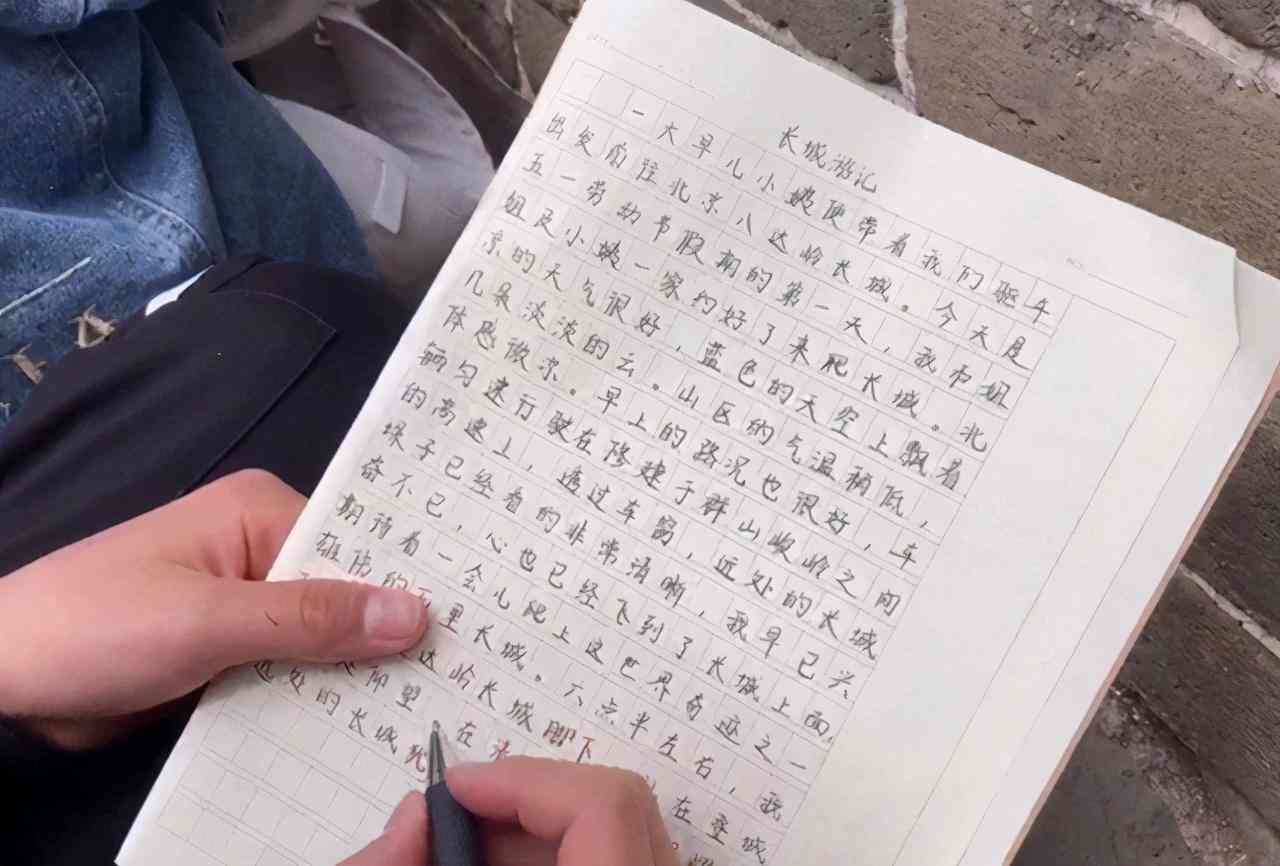 长城游记
一大早儿小姨便带着我们驱车
出发前往北京八达岭长城。今天是
五一劳动节假期的第一天，我和姐
姐及小姨一家约好了来爬长城。北
京的天气很好，蓝色的天空上飘着
几朵淡淡的云。山区的气温稍低，
体感微凉。早上的路况也很好，车
辆匀速行驶在修建于群山峻岭之间
的高速上，透过车窗，近处的长城
垛子已经看的非常清晰，我早已兴
奋不已，心也已经飞到了长城上面，
期待着一会儿爬上这世界奇迹之一
雄伟的万里长城。六点半左右，我
达岭长城脚下 在登城
仰望 在
远处的长城犹